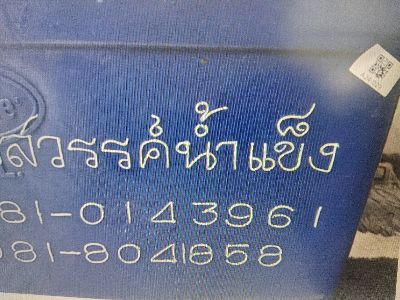 สวรรค์น้ำแข็ง
081-0143961
081-8041858